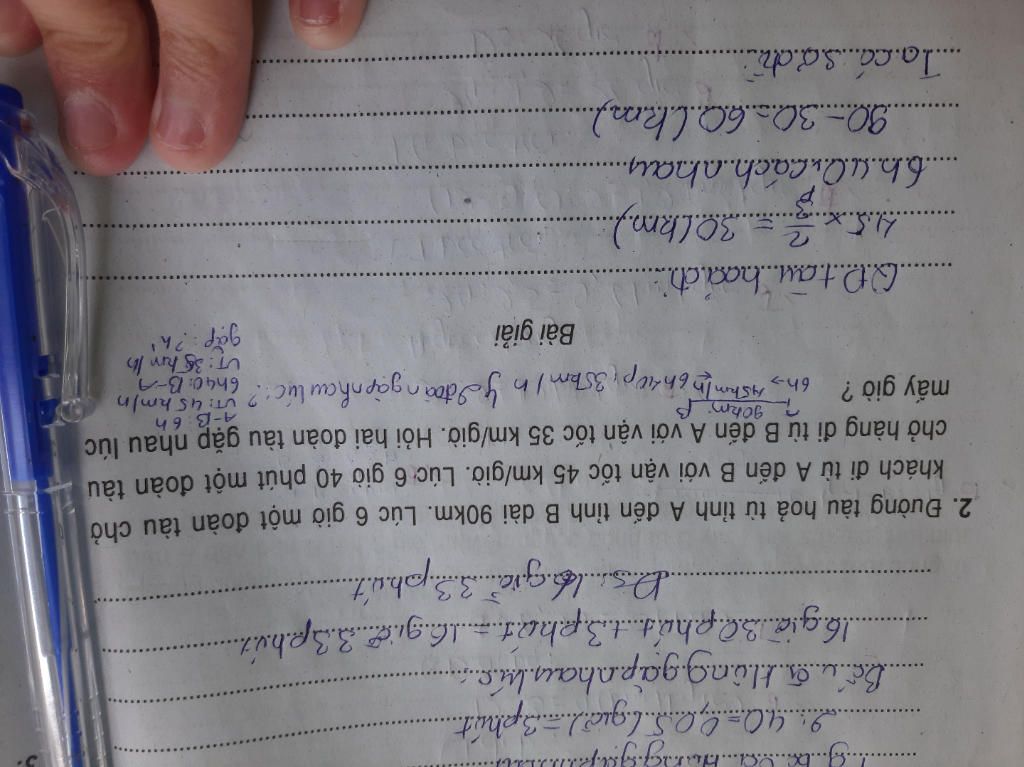 2 : 40 = 0,05 (giờ) = 3 phút
Bố và Hùng gặp nhau lúc :
16 giờ 30 phút + 3 phút = 16 giờ 33 phút
Đs : 16 giờ 33 phút
2. Đường tàu hoả từ tỉnh A đến tỉnh B dài 90km. Lúc 6 giờ một đoàn tàu chở
khách đi từ A đến B với vận tốc 45 km/giờ. Lúc 6 giờ 40 phút một đoàn tàu
chở hàng đi từ B đến A với vận tốc 35 km/giờ. Hỏi hai đoàn tàu gặp nhau lúc
mấy giờ ?
90km B
6h → 45km/h ← 6h40p; 35km/h
2 đoàn gặp nhau lúc ?
A-B: 6h
VT: 45 km/h
6h40: B-A
VT: 35km/h
gặp: ?h
Bài giải
QĐ tàu hoả đi:
45 × 2/3 = 30 (km)
cách nhau
90 - 30 = 60 (km)
Ta có sơ đồ: